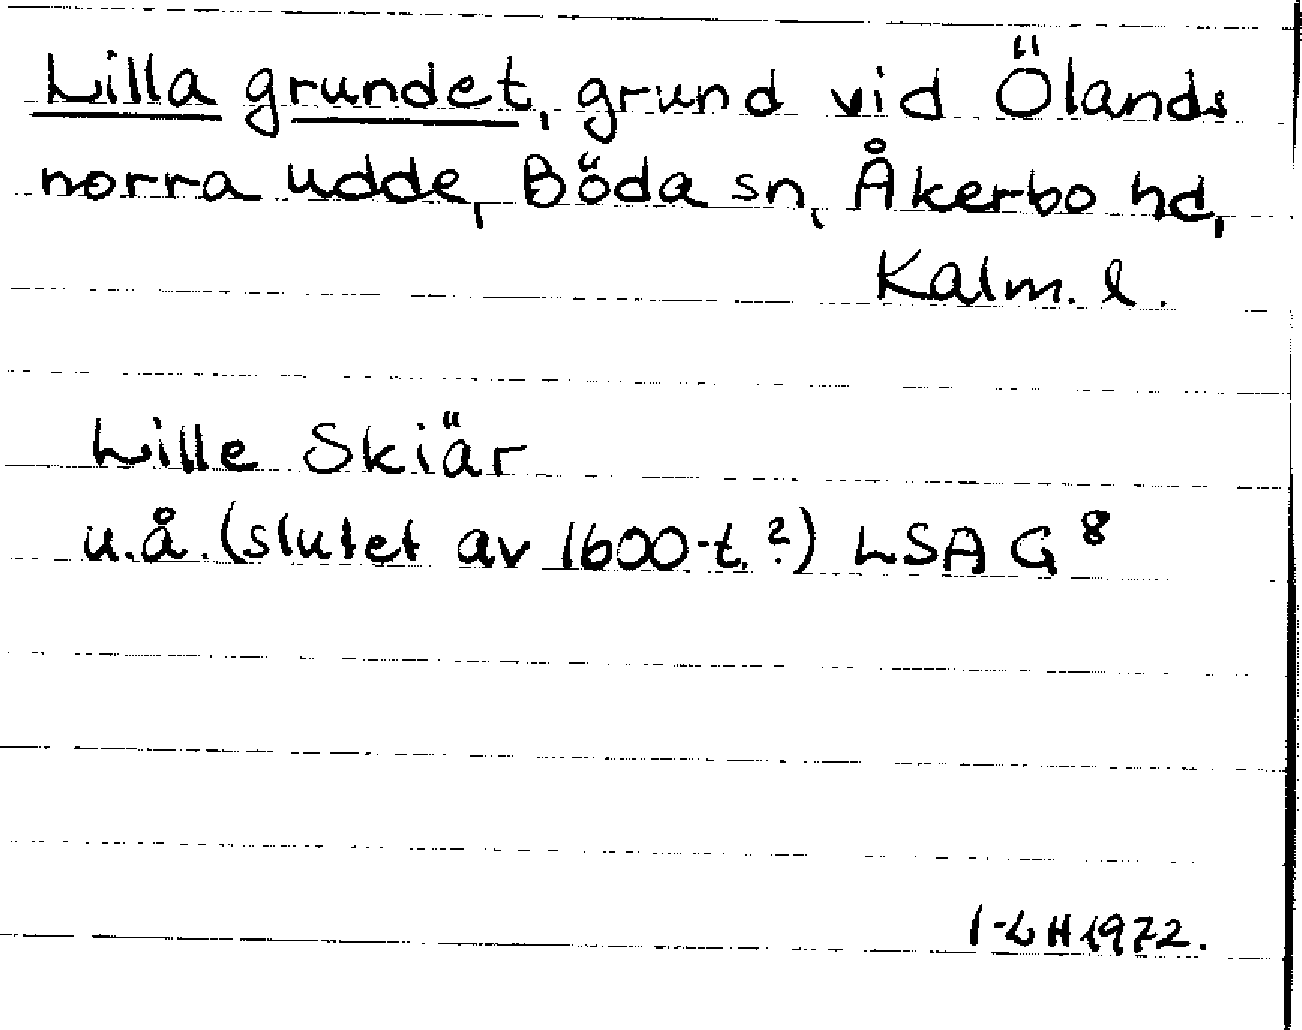 Lilla grundet, grund vid Ölands
norra udde, Böda sn, Åkerbo hd,
Kalm. l.
Lille Skiär
u.å. (slutet av 1600-t.?) LSA G 8
I-LH 1972.